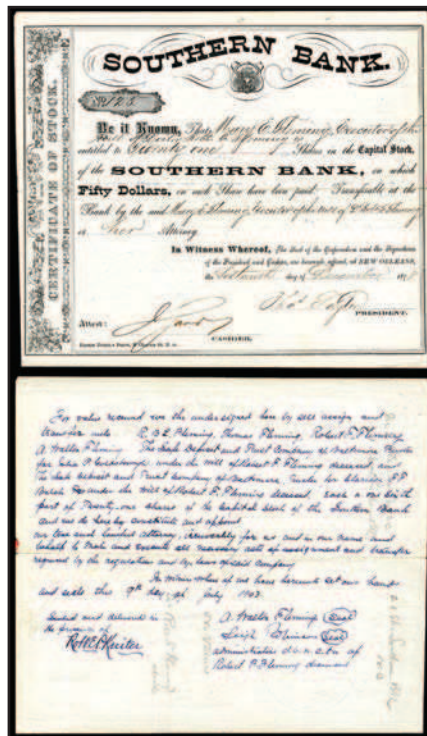 SOUTHERN BANK.
CERTIFICATE OF STOCK.
No 123
Be it Known, That Mary E. Fleming Executor of the
entitled to Twenty one Shares in the Capital Stock,
of the SOUTHERN BANK, on which
Fifty Dollars, on each Share have been paid. Transferable at the
Bank by the said Mary E. Fleming Executor of the will of
or her Attorney.
In Witness Whereof, The Seal of the Corporation and the Signatures
of the President and Cashier, are hereunto affixed, at NEW ORLEANS,
the day of December 18
PRESIDENT.
Attest:
CASHIER.
For value received we the undersigned here by sell assign and
transfer unto R. B. E. Fleming, Thomas Fleming, Robert F. Fleming
A. Walter Fleming The Safe Deposit and Trust Company of Baltimore Trustee
for under the will of Robert F. Fleming deceased, and
The Safe Deposit and Trust Company of Baltimore, Trustee for
under the will of Robert F. Fleming deceased, each a one
part of Twenty-one shares of the Capital Stock of the Southern Bank
and we do here by constitute and appoint
our true and lawful attorney, irrevocably for us and in our name and
behalf to make and execute all necessary acts of assignment and transfer
required by the regulations and by laws of said Company
In witness where of we have hereunto set our hands
and seals this 9th day of July 1903.
Sealed and delivered in
the presence of
A. Walter Fleming (Seal)
Leigh (Seal)
administrators d. b. n. c. t. a. of
Robert F. Fleming deceased